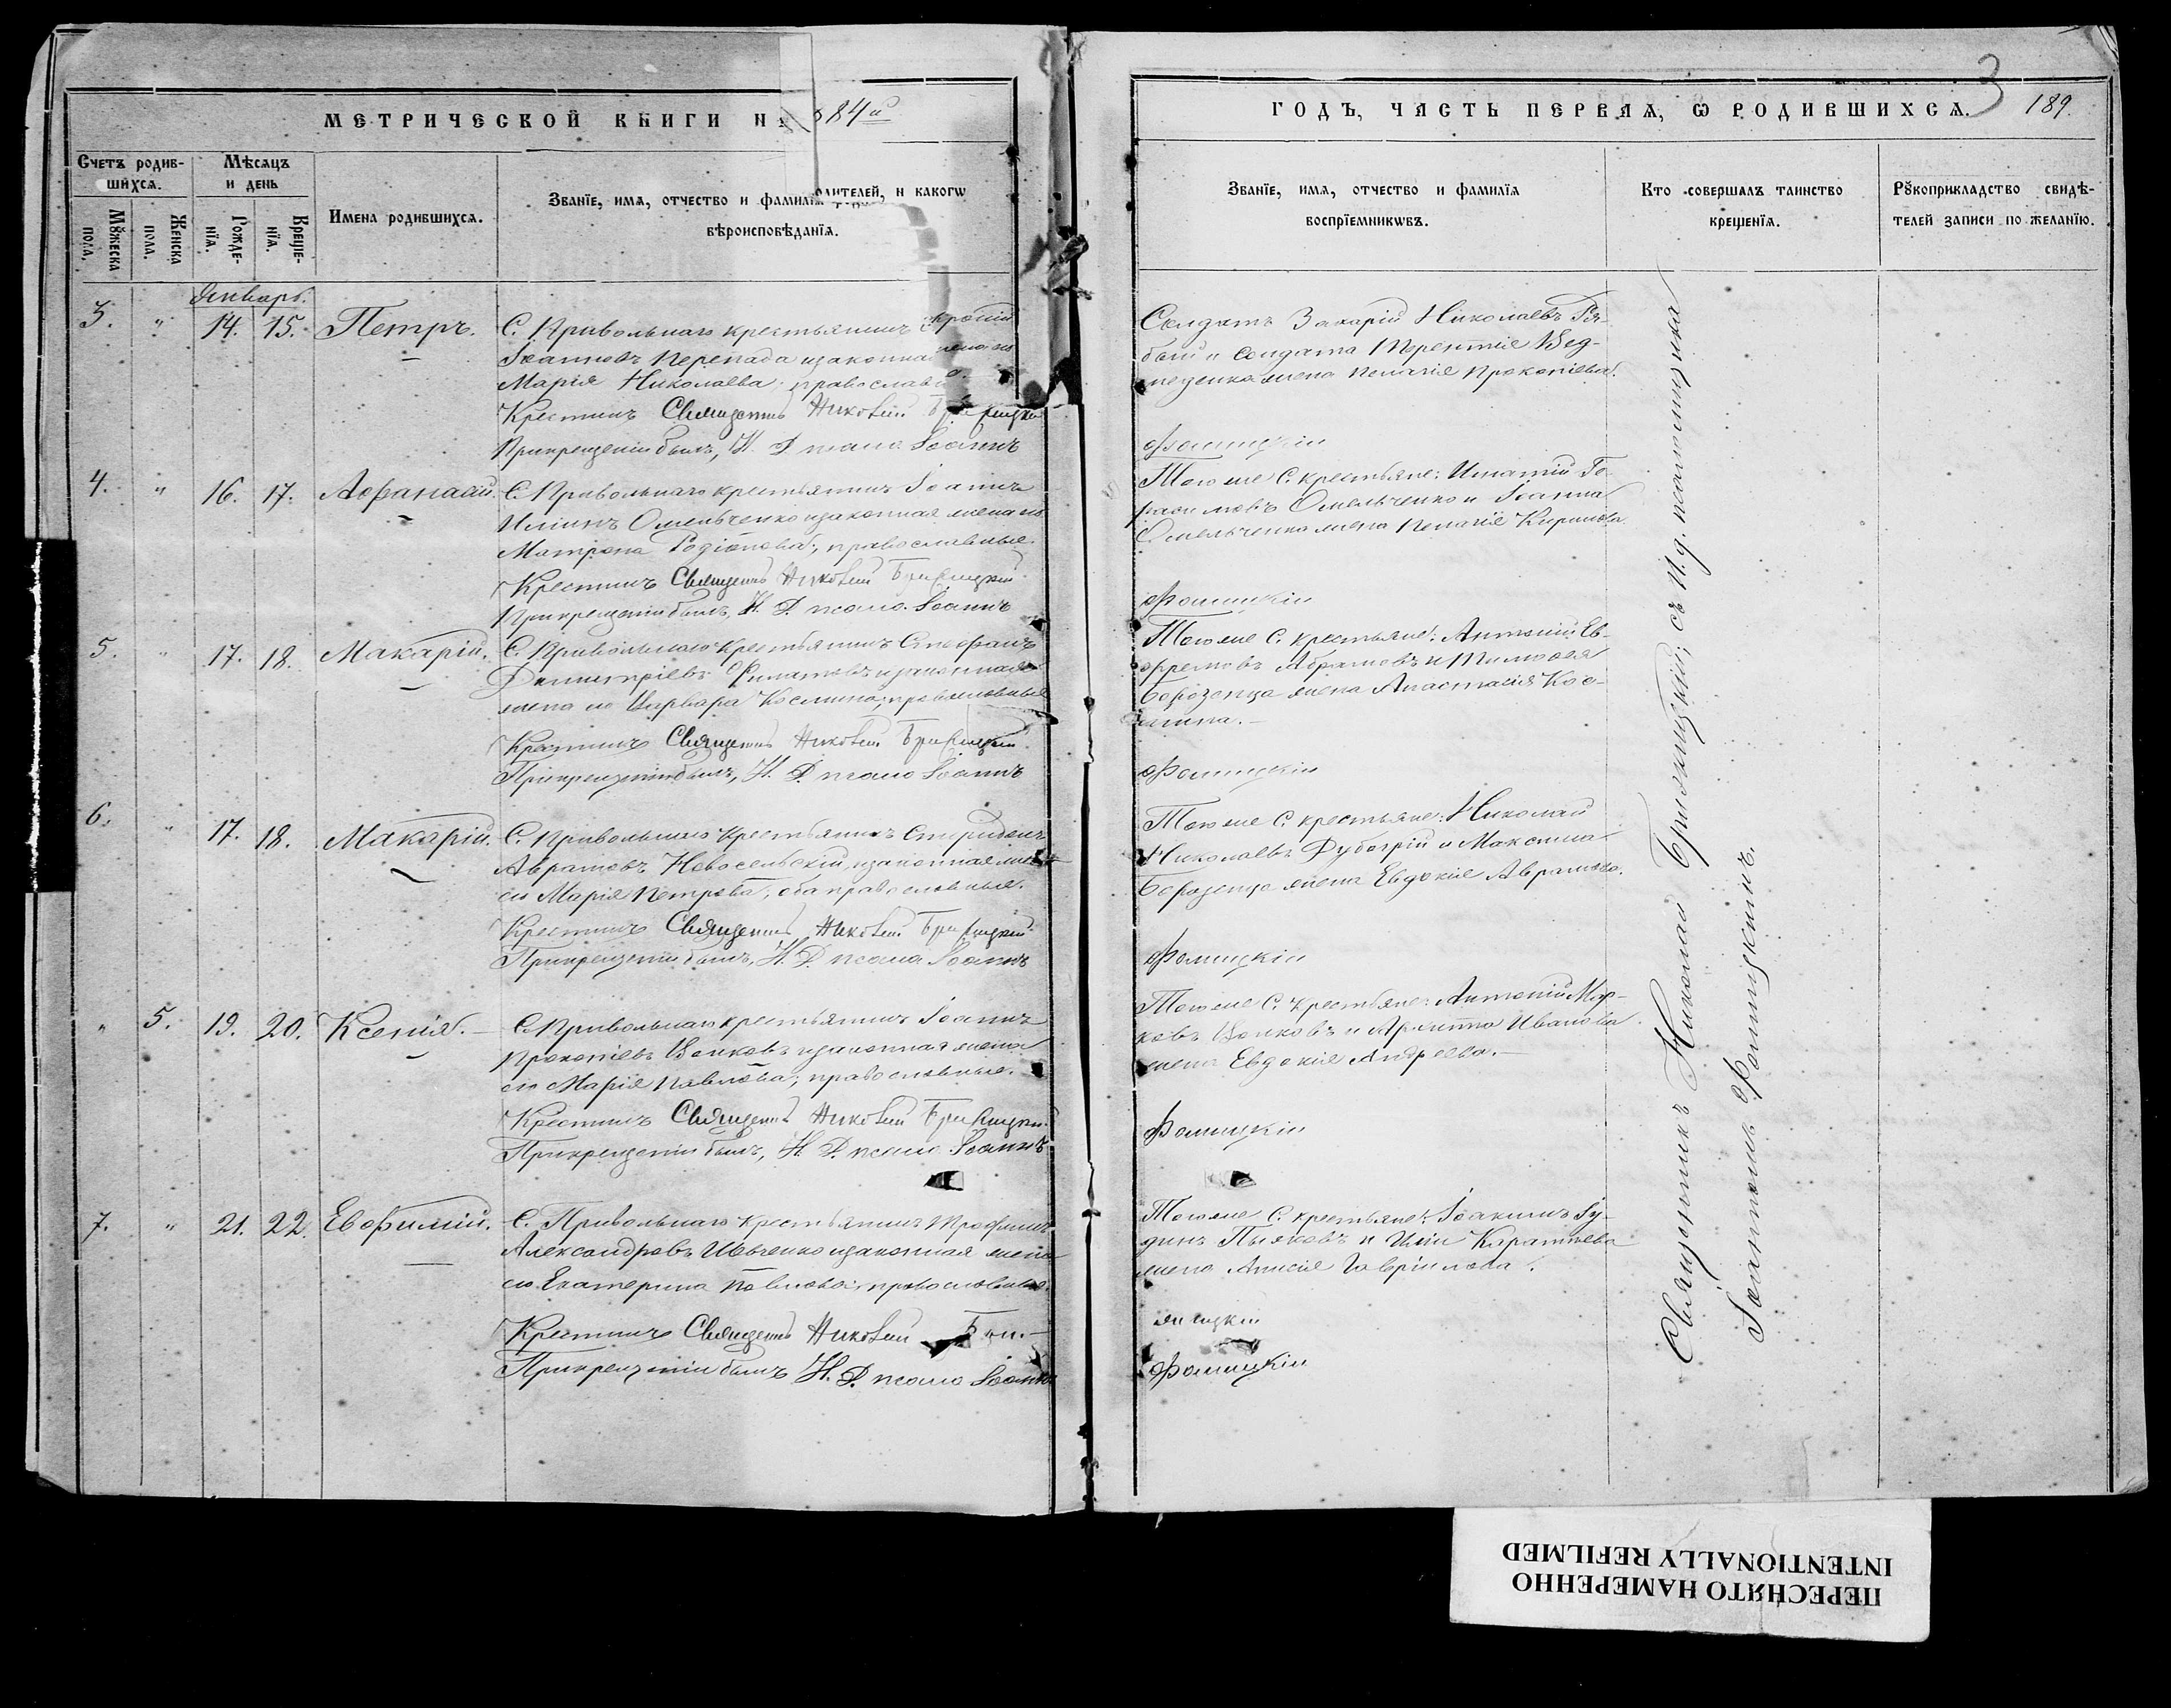 МЕТРИЧЕСКОЙ КНИГИ НА 1884й
Счетъ родившихсѧ.
Мѣсѧцъ и день
Мꙋжеска пола.
Женска пола.
Рожденїѧ.
Крещенїѧ.
Имена родившихсѧ.
Званїе, имѧ, отчество и фамилїѧ родителей, и какогѡ
вѣроисповѣданїѧ.
Январь.
3. " 14. 15. Петръ.
С. Привольнаго крестьянинъ
Іоанновъ Перепада и законная жена его
Марія Николаева; православные.
Крестилъ Священникъ Николай
При крещеніи былъ, И. Д. псало. Іоаннъ
4. " 16. 17. Аѳанасій.
С. Привольнаго крестьянинъ Іоаннъ
Иліинъ Омельченко и законная жена его
Матрона Родіонова; православные.
Крестилъ Священникъ Николай
При крещеніи былъ, И. Д. псало. Іоаннъ
5. " 17. 18. Макарій.
С. Привольнаго крестьянинъ Стефанъ
Димитріевъ Филатовъ и законная
жена его Варвара Космина; православные
Крестилъ Священникъ Николай
При крещеніи былъ, И. Д. псало Іоаннъ
6. " 17. 18. Макарій.
С. Привольнаго крестьянинъ Спиридонъ
Аврамовъ Новосельскій и законная жена
его Марія Петрова, оба православные.
Крестилъ Священникъ Николай
При крещеніи былъ, И. Д. псало Іоаннъ
" 5. 19. 20. Ксенія.
С. Привольнаго крестьянинъ Іоаннъ
Прокопіевъ Волковъ и законная жена
его Марія Павлова; православные.
Крестилъ Священникъ Николай
При крещеніи былъ, И. Д. псало Іоаннъ
7. " 21. 22. Евфимій.
С. Привольнаго крестьянинъ Трофимъ
Александровъ Шевченко и законная жена
его Екатерина Павлова; православные.
Крестилъ Священникъ Николай
При крещеніи былъ И. Д. псало Іоаннъ
ГОДЪ, ЧАСТЬ ПЕРВАЯ, Ѡ РОДИВШИХСѦ.
3
189.
Званїе, имѧ, отчество и фамилїѧ
воспрїемникѡвъ.
Кто совершалъ таинство
крещенїѧ.
Рꙋкоприкладство свидѣ-
телей записи по желанїю.
Солдатъ Захарій Николаевъ
и солдата Терентія
жена Пелагія Прокопіева.
Фомицкій
Того же С. крестьяне: Игнатій Ге-
расимовъ Омельченко и Іоанна
Омельченка жена Пелагія Кирилова
Фомицкій
Того же С. крестьяне: Антоній Еф-
ремовъ Абрамовъ и Тимофея
Борозенца жена Анастасія Кос-
мина.
Фомицкій
Того же С. крестьяне: Николай
Николаевъ и Максима
Борозенца жена Евдокія Аврамова.
Фомицкій
Того же С. крестьяне: Антоній Мар-
ковъ Волковъ и Иванова
жена Евдокія Андреева.
Фомицкій
Того же С. крестьяне: Іоакимъ
и Иліи
жена Анисія Гавріилова.
Фомицкій
Священникъ Николай съ И. д. псаломщика
Іоанномъ Фомицкимъ.
ПЕРЕСНЯТО НАМЕРЕННО
INTENTIONALLY REFILMED